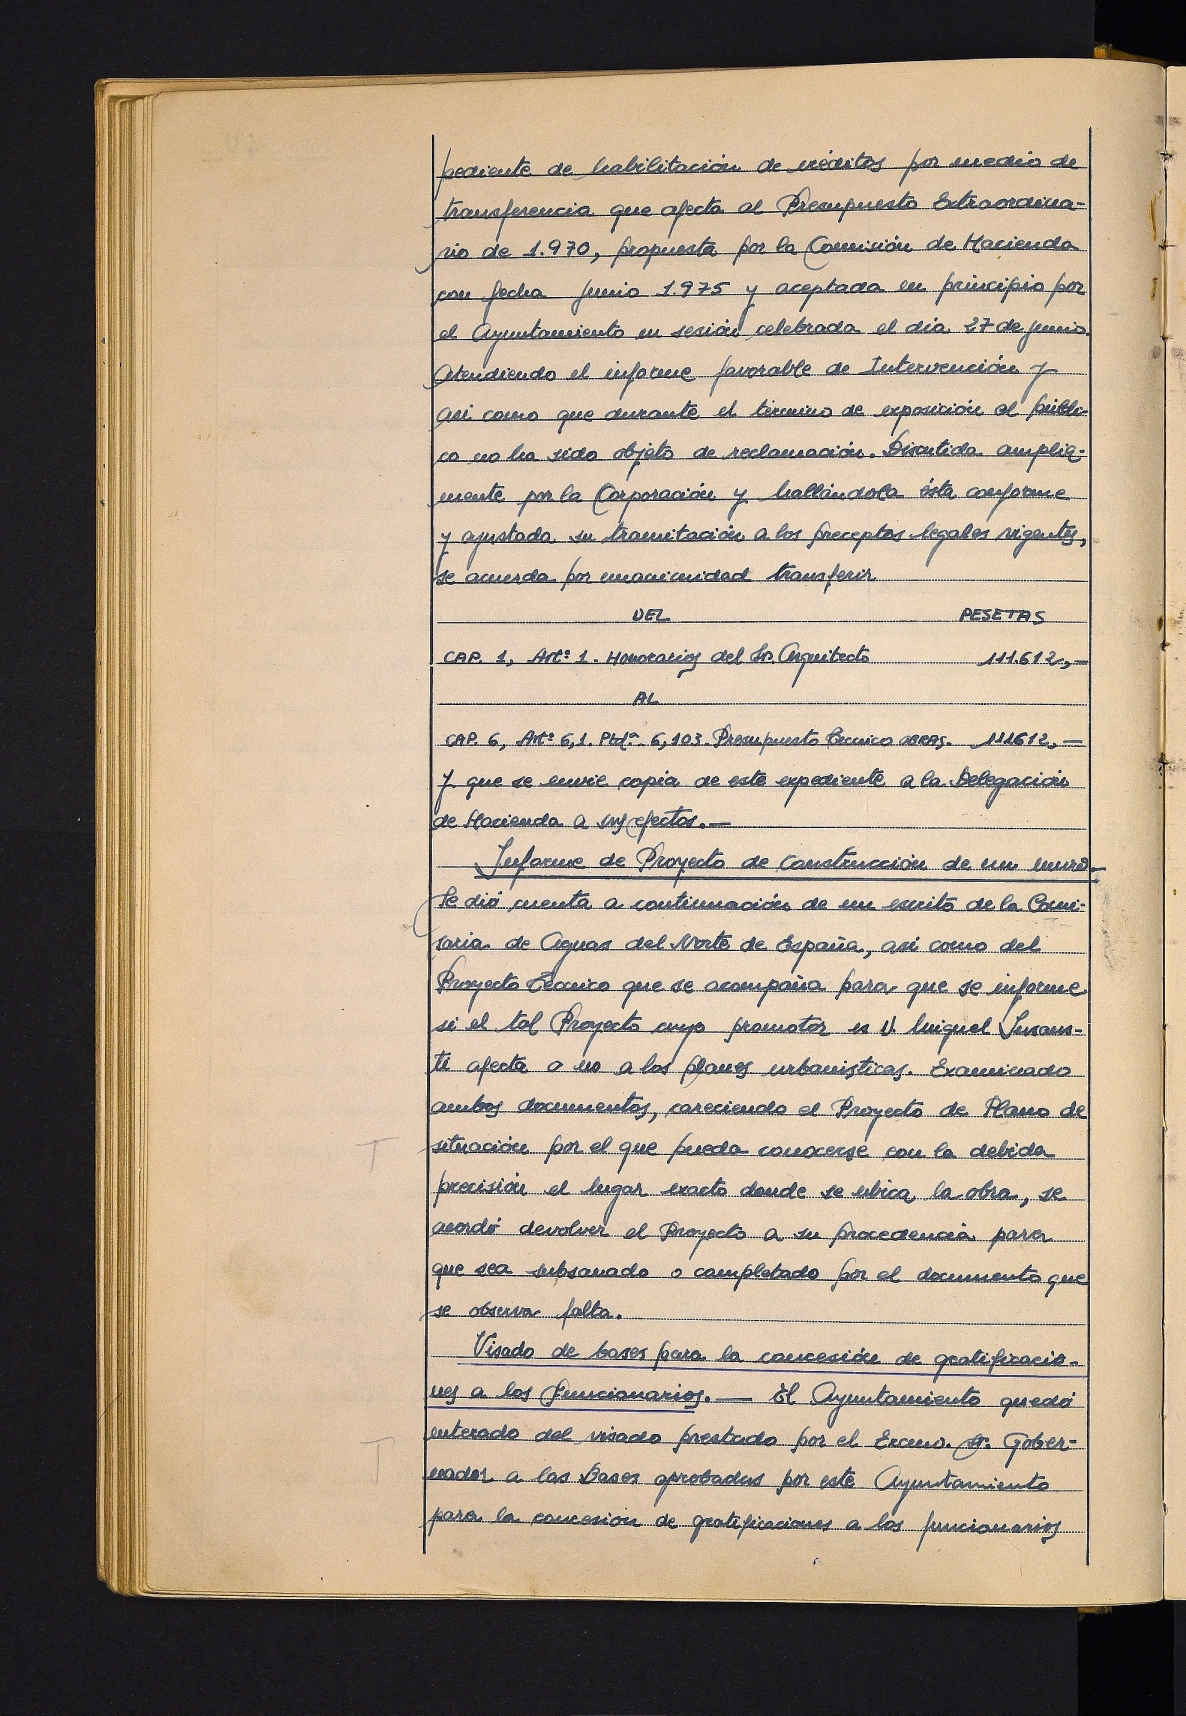 pediente de habilitación de créditos por medio de
transferencia que afecta al Presupuesto Extraordina-
rio de 1.970, propuesta por la Comisión de Hacienda
con fecha Junio 1.975 y aceptada en principio por
el Ayuntamiento en sesión celebrada el día 27 de Junio.
Atendiendo el informe favorable de Intervención y
asi como que durante el término de exposición al públi-
co no ha sido objeto de reclamación. Discutida amplia-
mente por la Corporación y hallándola ésta conforme
y ajustada su tramitación a los preceptos legales vigentes,
se acuerda por unanimidad transferir
DEL PESETAS
CAP. 1, Artº 1. Honorarios del Sr. Arquitecto 111.612,—
AL
CAP. 6, Artº 6,1. Ptdª. 6,103. Presupuesto Técnico OBRAS. 111.612,—
y que se envie copia de este expediente a la Delegación
de Hacienda a sus efectos.—
Informe de Proyecto de Construcción de un muro.
Se dió cuenta a continuación de un escrito de la Comi-
saria de Aguas del Norte de España, asi como del
Proyecto Técnico que se acompaña para que se informe
si el tal Proyecto cuyo promotor es D. Miguel
afecta o no a los planes urbanisticas. Examinado
ambos documentos, careciendo el Proyecto de Plano de
situación por el que pueda conocerse con la debida
precisión el lugar exacto donde se ubica la obra, se
acordó devolver el Proyecto a su procedencia para
que sea subsanado o completado por el documento que
se observa falta.
Visado de bases para la concesión de gratificacio-
nes a los Funcionarios.— El Ayuntamiento quedó
enterado del visado prestado por el Excmo. Sr. Gober-
nador a las Bases aprobadas por este Ayuntamiento
para la concesión de gratificaciones a los funcionarios